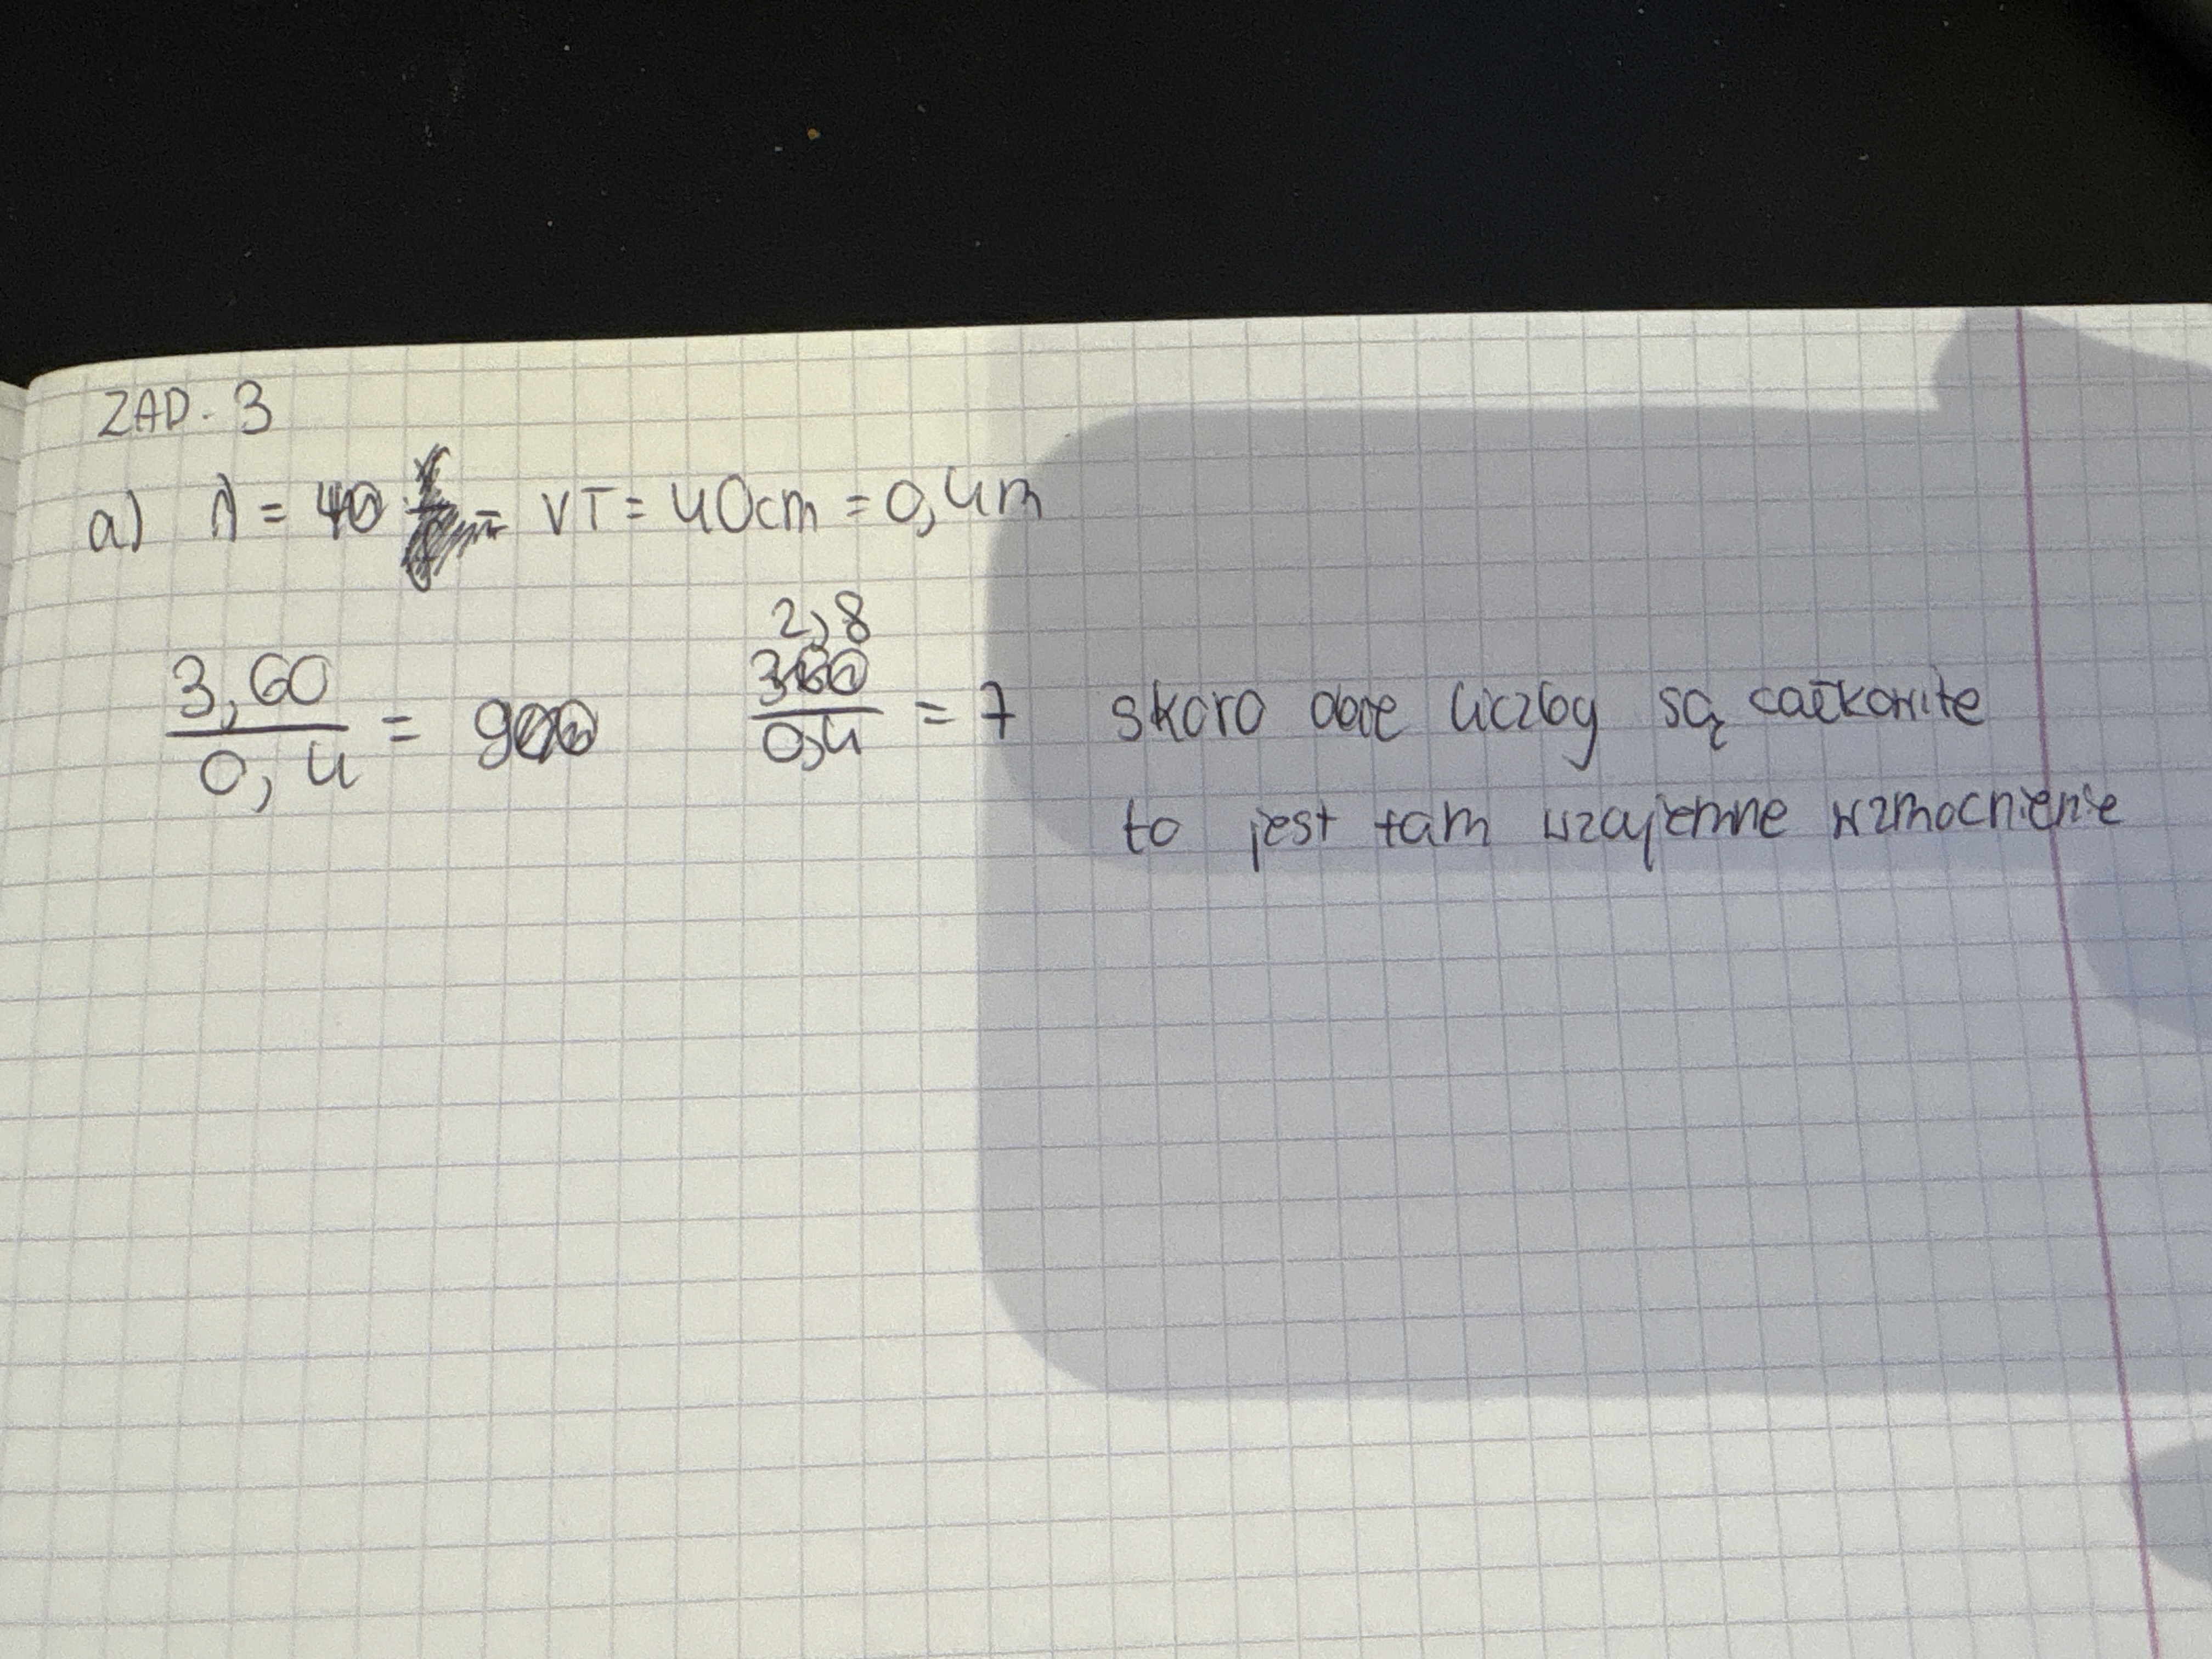 ZAD. 3
a) λ = 40 = VT = 40cm = 0,4m
3,60 / 0,4 = 9
2,8 / 0,4 = 7 skoro obie liczby są całkowite
to jest tam wzajemne wzmocnienie